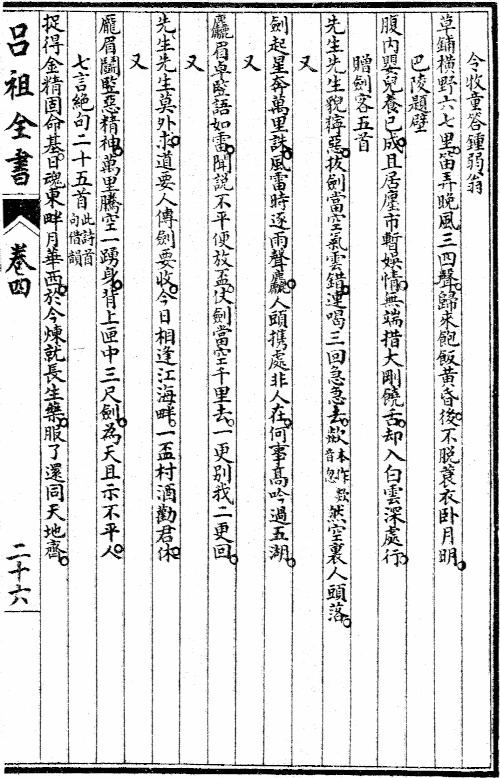 令牧童答鍾弱翁
草鋪橫野六七里。笛弄晚風三四聲。歸來飽飯黃昏後。不脫蓑衣臥月明。
巴陵題壁
腹內嬰兒養已成。且居廛市暫娛情。無端措大剛饒舌。却入白雲深處行。
贈劍客五首
先生先生貌獰惡。拔劍當空氣雲錯。連喝三回急急去。歘本作欻音忽然空裏人頭落。
又
劍起星奔萬里誅。風雷時逐雨聲麤。人頭攜處非人在。何事高吟過五湖。
又
麤眉卓豎語如雷。聞說不平便放盃。仗劍當空千里去。一更別我二更回。
又
先生先生莫外求。道要人傳劍要收。今日相逢江海畔。一盃村酒勸君休。
又
龐眉鬭豎惡精神。萬里騰空一踴身。背上匣中三尺劍。為天且示不平人。
七言絕句二十五首此詩首句借韻
捉得金精固命基。日魂東畔月華西。於今煉就長生藥。服了還同天地齊。
呂祖全書 卷四 二十六